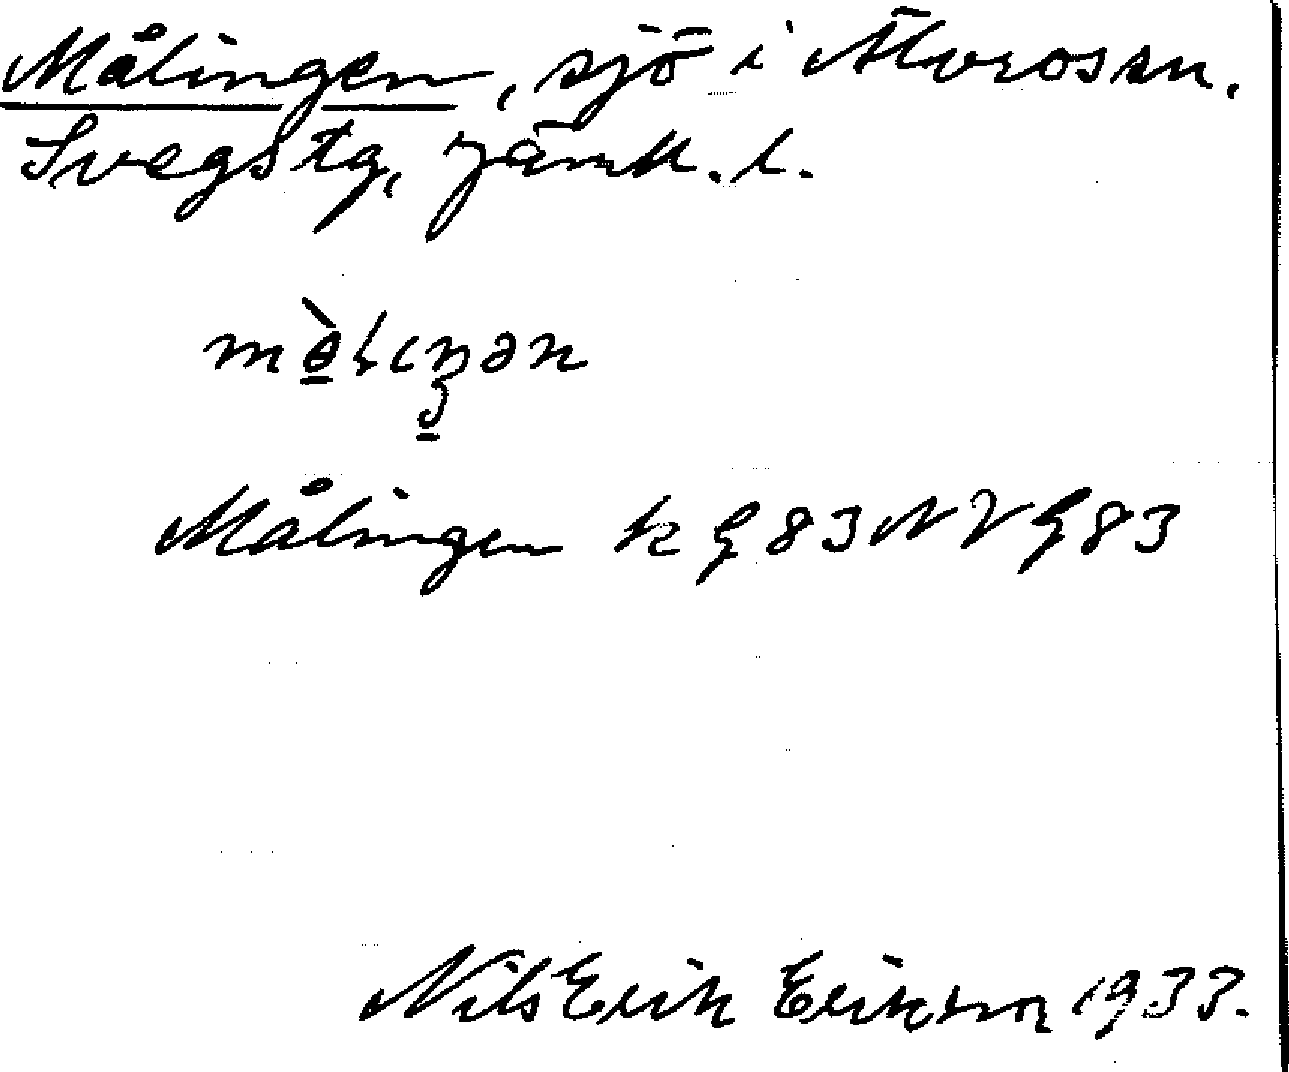 Målingen, sjö i Älvros sn.
Svegs tg, Jämtl. l.
mə̀lıŋən
Målingen k G 83 NV G 83
Nils Erik Erikson 1933.